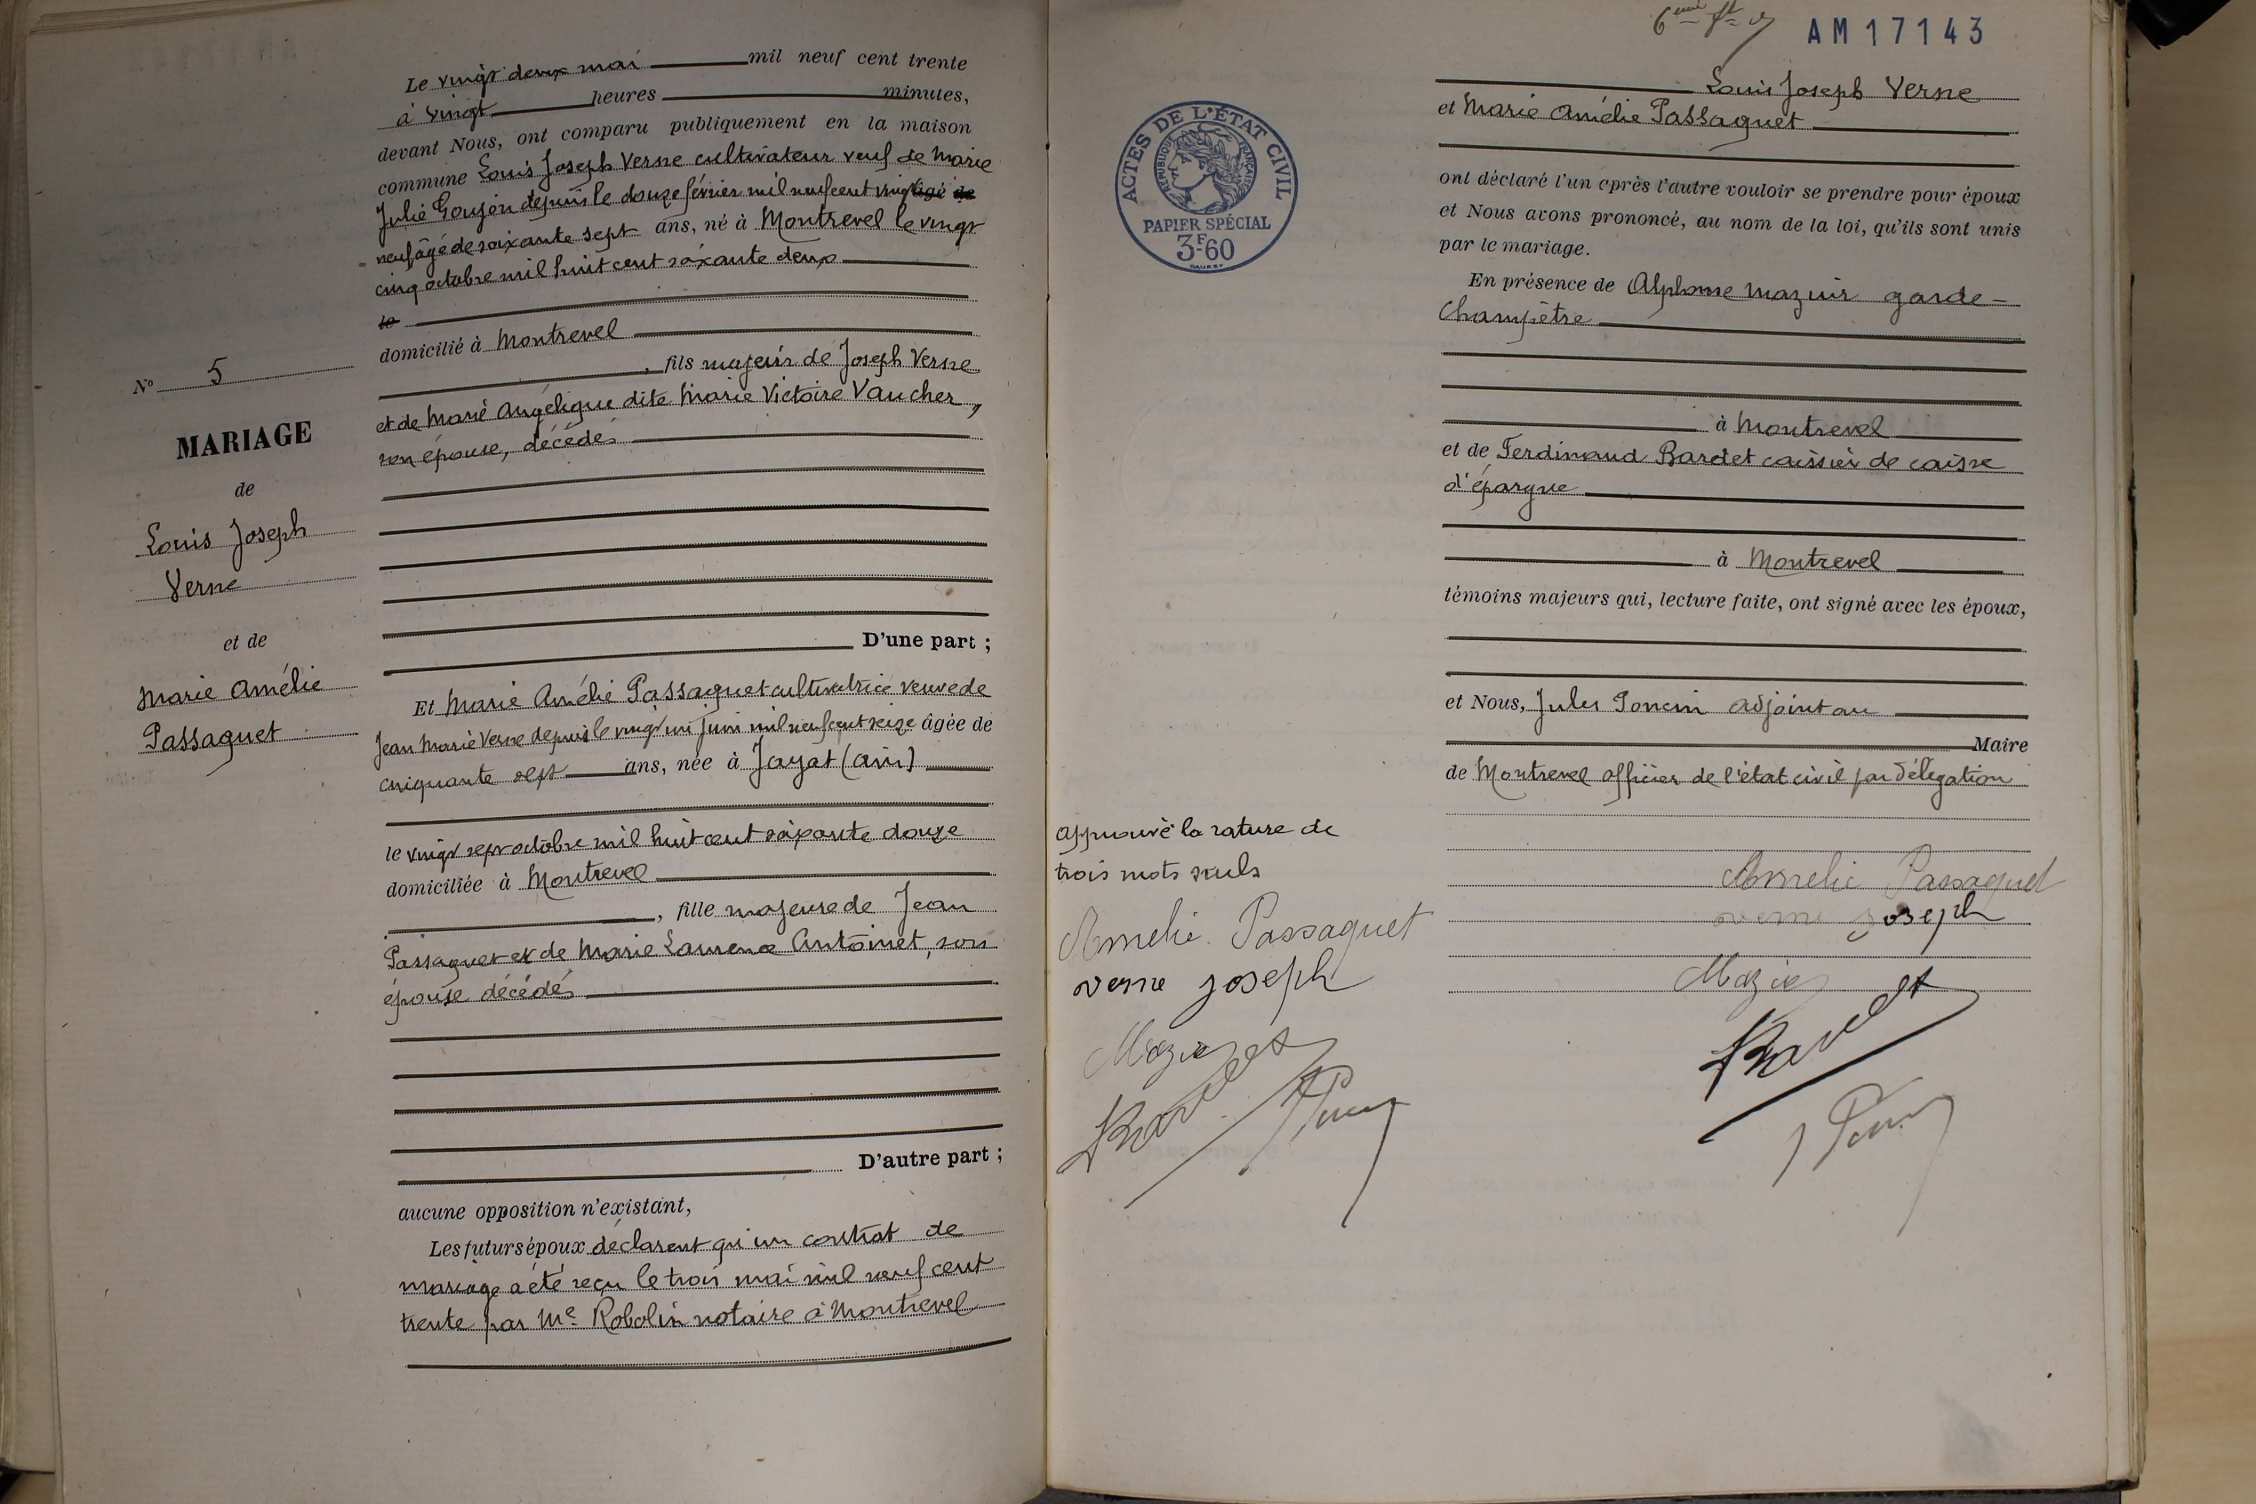 N° 5
MARIAGE
de
Louis Joseph
Verne
et de
Marie Amélie
Passaguet
Le vingt deux mai mil neuf cent trente
à vingt heures minutes,
devant Nous, ont comparu publiquement en la maison
commune Louis Joseph Verne cultivateur veuf de Marie
Julie Goujon depuis le douze février mil neuf cent vingt âgé de
neuf âgé de soixante sept ans, né à Montrevel le vingt
cinq octobre mil huit cent soixante deux
le
domicilié à Montrevel
, fils majeur de Joseph Verne
et de Marie Angélique dite Marie Victoire Vaucher,
son épouse, décédés
D'une part ;
Et Marie Amélie Passaguet cultivatrice veuve de
Jean Marie Verne depuis le vingt un juin mil neuf cent seize âgée de
cinquante sept ans, née à Jayat (Ain)
le vingt sept octobre mil huit cent soixante douze
domiciliée à Montrevel
, fille majeure de Jean
Passaguet et de Marie Laurence Antoinet, son
épouse décédés
D'autre part ;
aucune opposition n'existant,
Les futurs époux déclarent qu'un contrat de
mariage a été reçu le trois mai mil neuf cent
trente par Me Robolin notaire à Montrevel
6eme ft
AM17143
ACTES DE L'ÉTAT CIVIL
RÉPUBLIQUE FRANÇAISE
PAPIER SPÉCIAL
3F60
Louis Joseph Verne
et Marie Amélie Passaguet
ont déclaré l'un après l'autre vouloir se prendre pour époux
et Nous avons prononcé, au nom de la loi, qu'ils sont unis
par le mariage.
En présence de Alphonse Mazuir garde-
Champêtre
à Montrevel
et de Ferdinand Bardet caissier de caisse
d'épargne
à Montrevel
témoins majeurs qui, lecture faite, ont signé avec les époux,
et Nous, Jules Poncin adjoint au
Maire
de Montrevel officier de l'état civil par délégation
Amelie Passaguet
verne joseph
Mazuir
Bardet
J Poncin
approuvé la rature de
trois mots nuls
Amelie Passaguet
verne joseph
Mazuir
Bardet
J Poncin